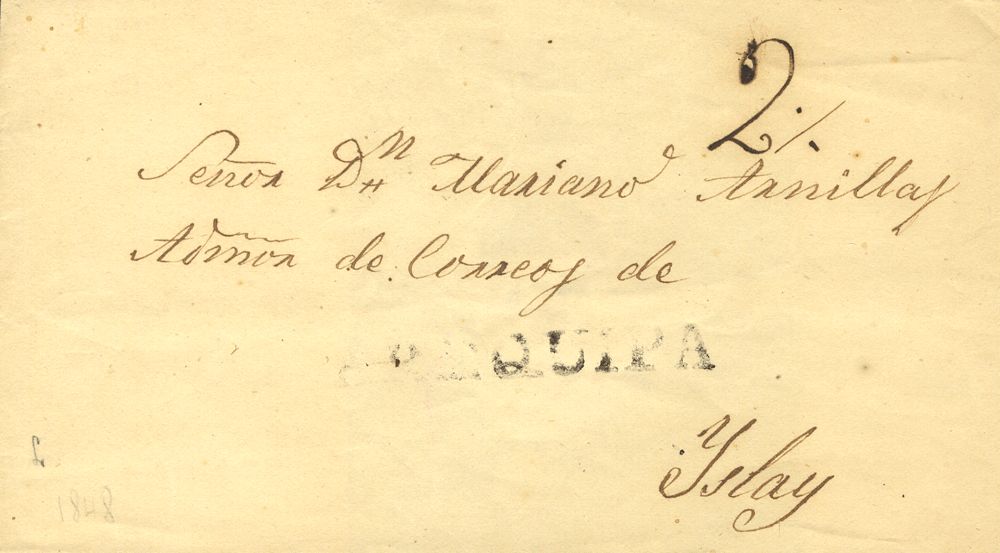 2
Señor Dn Mariano Arnillas
Admor de Correos de
AREQUIPA
Yslay
1848